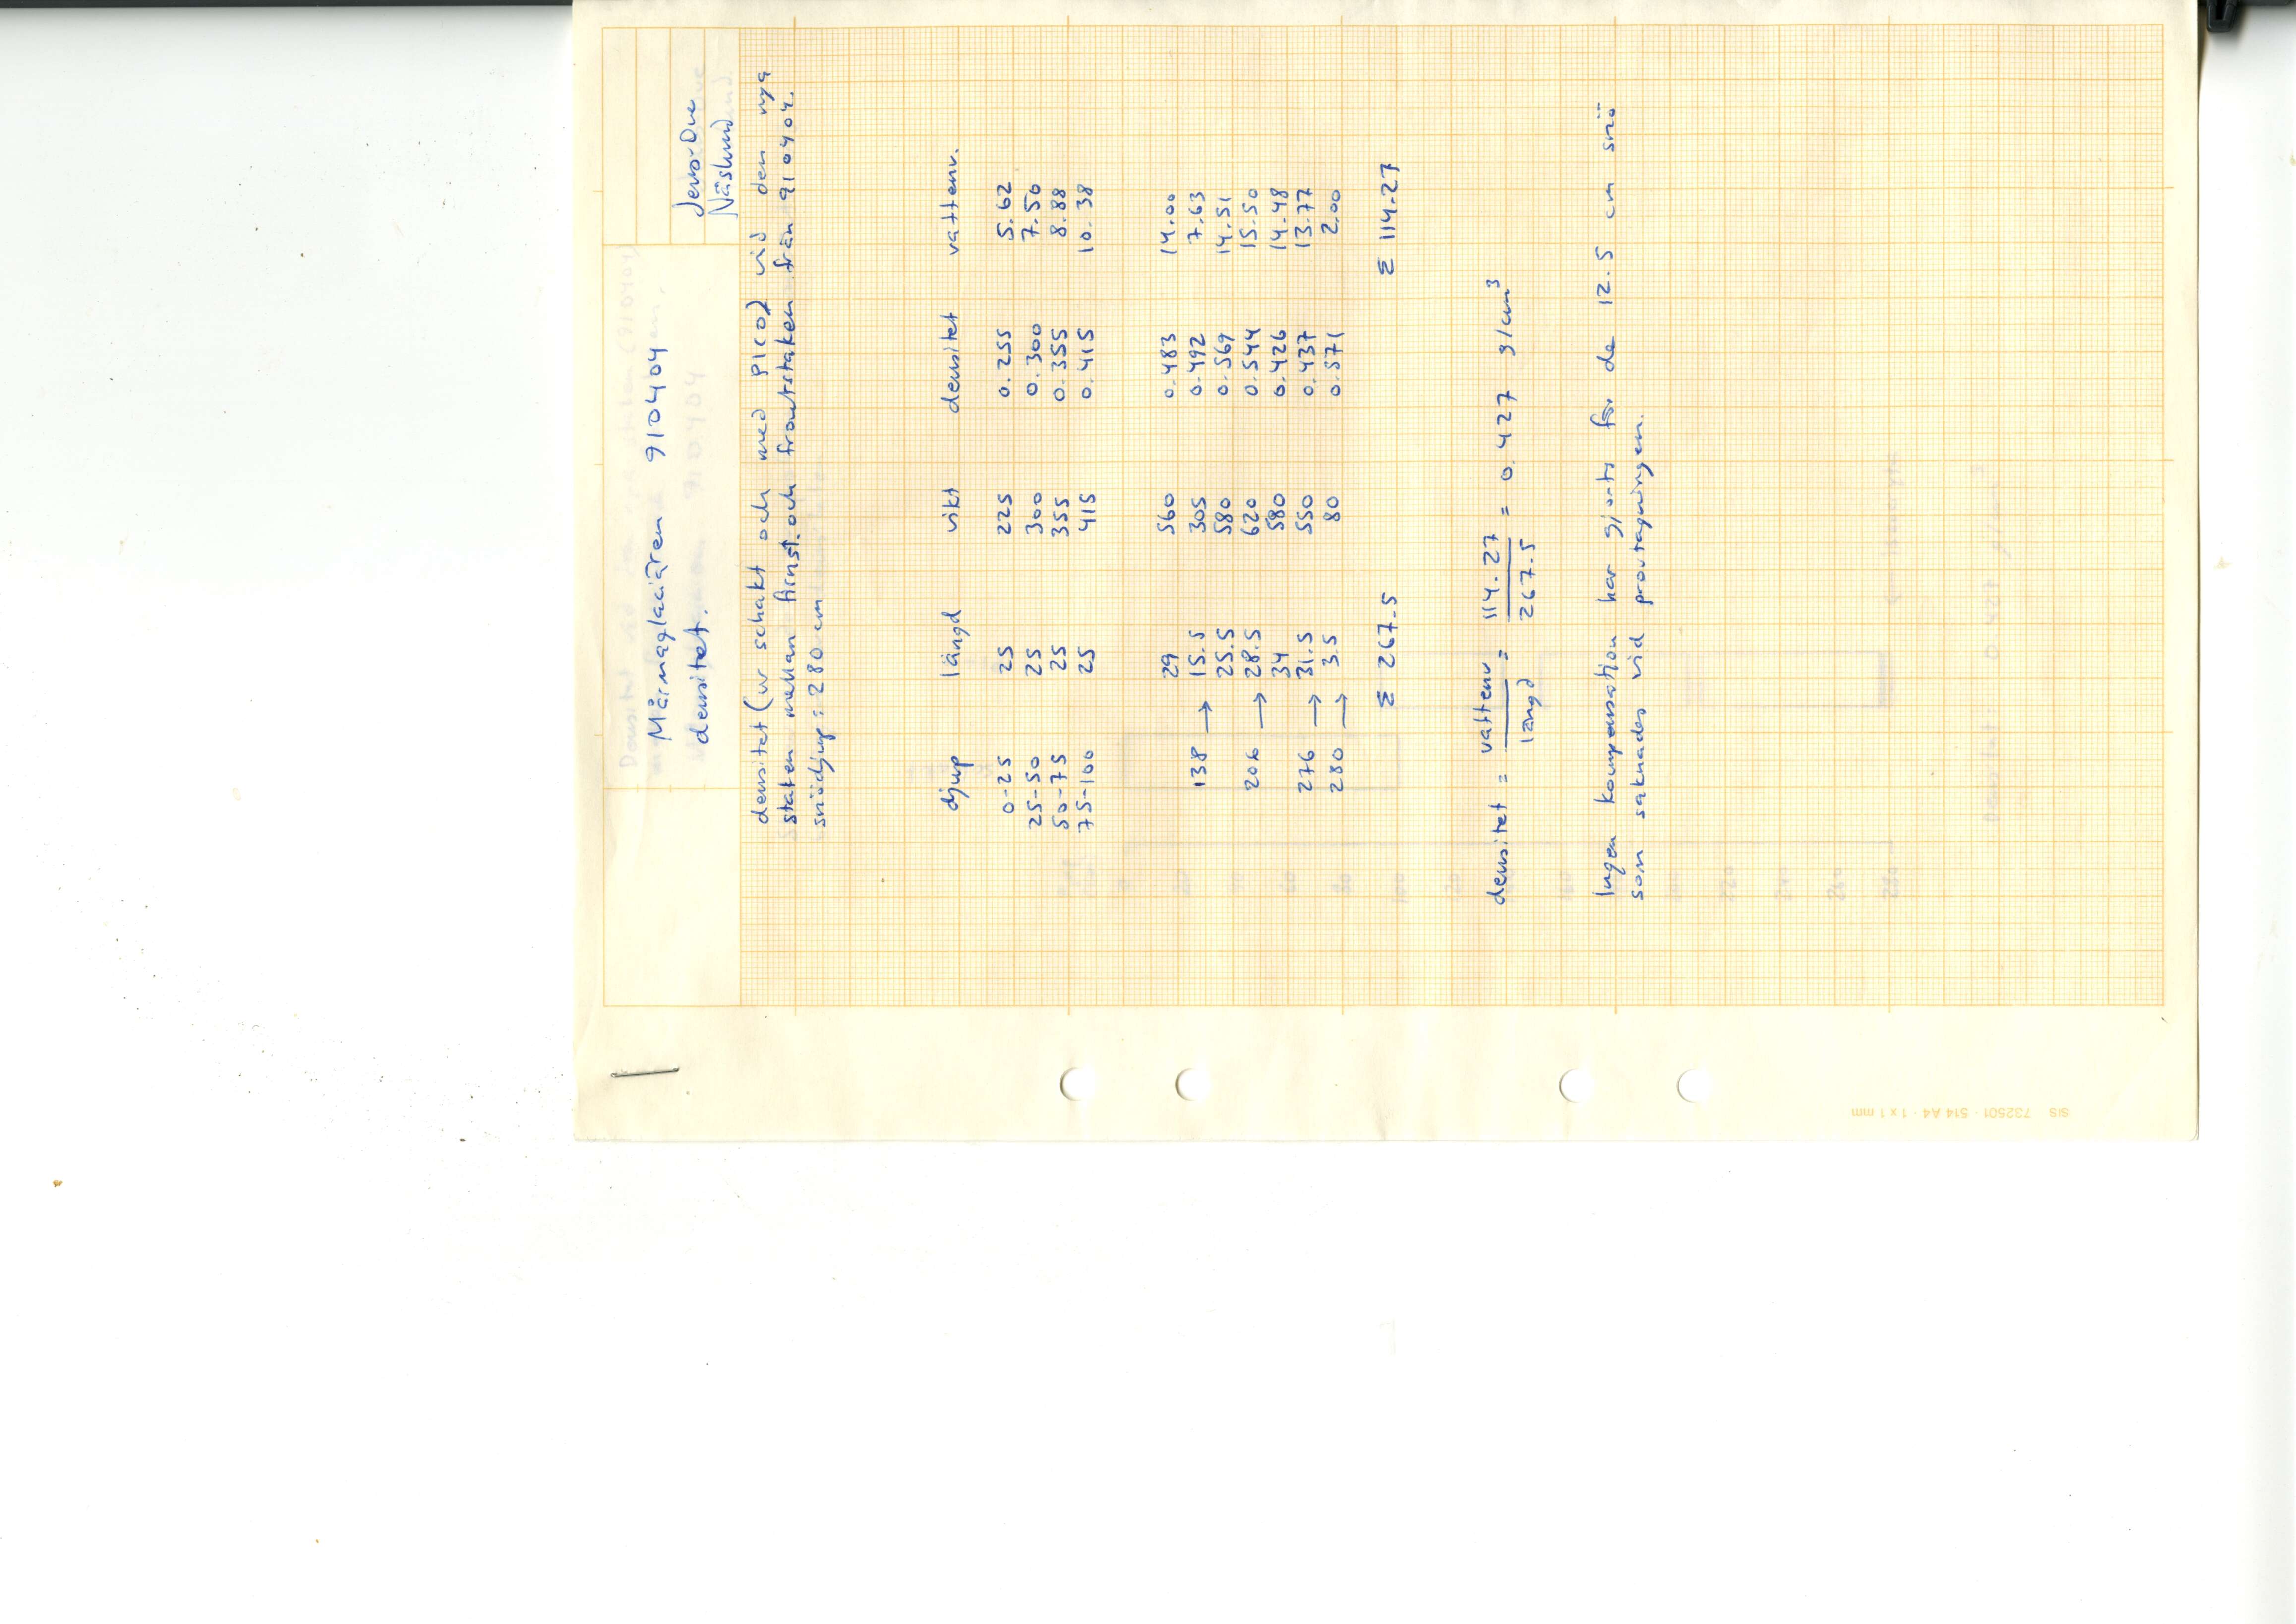 Mårmaglaciären 910404
densitet.
Jens-Ove
Näslund
densitet (ur schakt och med PICO) vid den nya
staken mellan firnst. och frontstaken från 910404.
snödjup = 280 cm
djup längd vikt densitet vattenv.
0-25 25 225 0.255 5.62
25-50 25 300 0.300 7.50
50-75 25 355 0.355 8.88
75-100 25 415 0.415 10.38
29 560 0.483 14.00
138 → 15.5 305 0.492 7.63
25.5 580 0.569 14.51
206 → 28.5 620 0.544 15.50
34 580 0.426 14.48
276 → 31.5 550 0.437 13.77
280 → 3.5 80 0.571 2.00
Σ 267.5 Σ 114.27
densitet = vattenv / längd = 114.27 / 267.5 = 0.427 g/cm³
Ingen kompensation har gjorts för de 12.5 cm snö
som saknades vid provtagningen.
SIS 732501 · 514 A4 · 1 x 1 mm